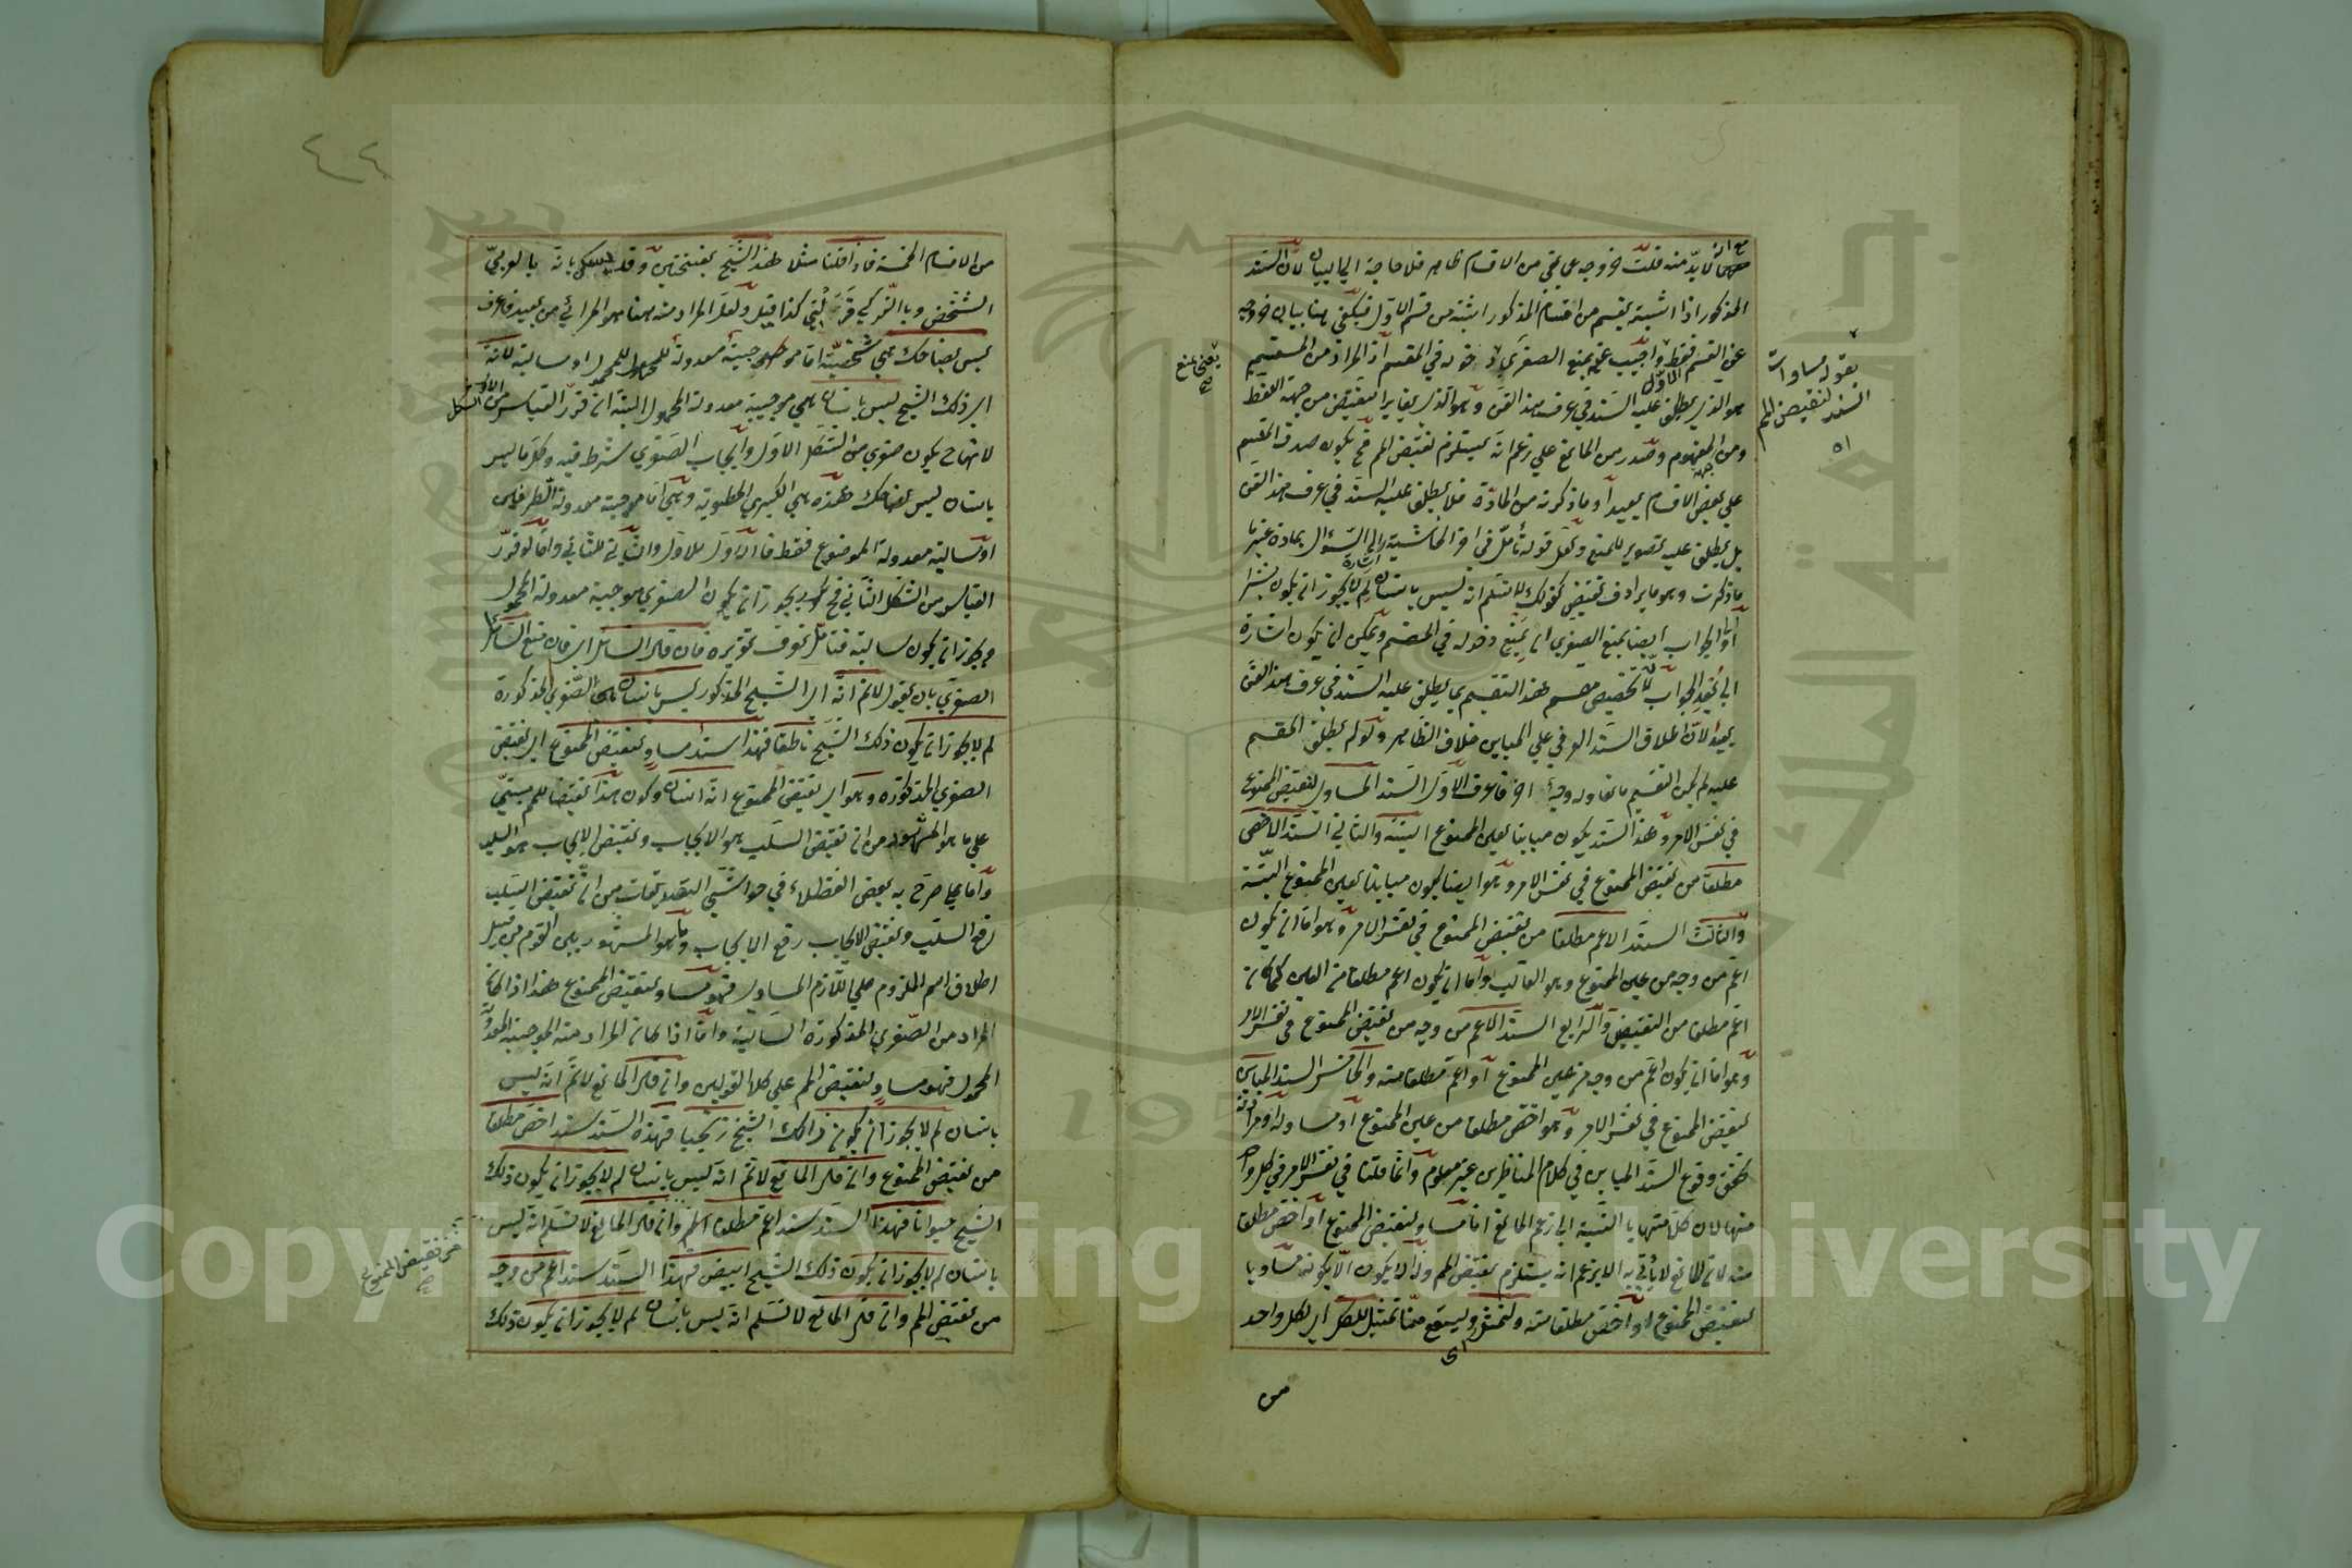 لابد منه قلت خروجه عن بقي من الاقسام ظاهر فلا حاجة الى البيان لان السند
المذكور اذا اشتبه بقسم من اقسام المذكور اشتبه من قسم الاول فيكفي هنا بيان خروجه
عن القسم فقط واجيب عنه بمنع الصغرى دخوله في المقسم اذ المراد من المقسم
هو الذي يطلق عليه السند في عرف هذا الفن وهو الذي يغاير النقيض من جهة اللفظ
ومن المفهوم وصدر من المانع على زعم انه يستلزم نقيض المم فح يكون صدق المقسم
على بعض الاقسام بعيدا وما ذكرته من المادة فلا يطلق عليه السند في عرف هذا الفن
بل يطلق عليه تصوير للمنع ولعل قوله تأمل في اخر الحاشية اشارة الى السؤال بمادة غير ما
ما ذكرت وهو ما يرادف نقيض كقولك لا نسلم انه ليس بانسان لم لا يجوز ان يكون بشرا
والجواب ايضا بمنع الصغرى اي بمنع دخوله في المقسم ويمكن ان يكون اشارة
الى بعد الجواب لان تخصيص مقسم هذا التقسيم بما يطلق عليه السند في عرف هذا الفن
بعيد لان اطلاق السند العرفي على المباين خلاف الظاهر ولو لم يطلق المقسم
عليه لم يكن التقسيم فاعرف الاول السند المساوي لنقيض الممنوع
في نفس الامر وهذا السند يكون مباينا لعين الممنوع البتة والثاني السند الاخص
مطلقا من نقيض الممنوع في نفس الامر وهو ايضا يكون مباينا لعين الممنوع البتة
والثالث السند الاعم مطلقا من نقيض الممنوع في نفس الامر وهو اما ان يكون
اعم من وجه من عين الممنوع وهو الغالب واما ان يكون اعم مطلقا من العين كما كان
اعم مطلقا من النقيض والرابع السند الاعم من وجه من نقيض الممنوع في نفس الامر
وهو اما ان يكون اعم من وجه من عين الممنوع او اعم مطلقا منه والخامس السند المباين
لنقيض الممنوع في نفس الامر وهو اخص مطلقا من عين الممنوع او مساو له او مرادفه
تحقق وقوع السند المباين في كلام المناظرين غير معلوم وانما قلنا في نفس الامر في كل واحد
منها لان كلا منها بالنسبة الى زعم المانع اما مساو لنقيض الممنوع او اخص مطلقا
منه لان المانع لا يأتي به الا بزعم انه يستلزم نقيض المم وذا لا يكون الا بكونه مساويا
لنقيض الممنوع او اخص مطلقا منه ولنمثل وليستمع منا تمثيل للكل اي لكل واحد
من
يعني بمنع
صح
بقوله مساوات
السند لنقيض المم
اه
من الاقسام الخمسة فاذا قلنا مثلا هذا الشبح بفتحتين بانه بالعربي
الشخص وبالتركي كذا قيل ولعل المراد منه هنا هو المرائي من بعيد فاعرف
ليس بضاحك هي شخصية اما موجبة معدولة المحمول او سالبة لانه
اي ذلك الشبح ليس بانسان هي موجبة معدولة المحمول البتة ان قرر القياس من الشكل الاول
لانها ح يكون صغرى من الشكل الاول وايجاب الصغرى شرط فيه وكل ما ليس
بانسان ليس بضاحك هذه هي الكبرى المطوية وهي اما موجبة معدولة الطرفين
او سالبة معدولة الموضوع فقط فالاول للاول والثاني للثاني واما لو قرر
القياس من الشكل الثاني فح يجوز ان يكون الصغرى موجبة معدولة المحمول
ويجوز ان يكون سالبة فتأمل تعرف تقريره فان قال السائل اي فان منع السائل
الصغرى بان يقول لا نم انه اي الشبح المذكور ليس بانسان الصغرى المذكورة
لم لا يجوز ان يكون ذلك الشبح ناطقا فهذا سند مساو لنقيض الممنوع اي لنقيض
الصغرى المذكورة وهو اي نقيض الممنوع انه انسان وكون هذا نقيضا للمم مبني
على ما هو المشهور من ان نقيض السلب هو الايجاب ونقيض الايجاب هو السلب
واما على ما صرح به بعض الفضلاء في حواشي التصديقات من ان نقيض السلب
رفع السلب ونقيض الايجاب رفع الايجاب وما هو المشهور بين القوم من قبيل
اطلاق اسم الملزوم على اللازم المساوي فهو مساو لنقيض الممنوع هذا اذا كان
المراد من الصغرى المذكورة السالبة واما اذا كان المراد منه الموجبة المعدولة
المحمول فهو مساو لنقيض المم على كلا القولين وان قال المانع لا نم انه ليس
بانسان لم لا يجوز ان يكون ذلك الشبح زنجيا فهذه السند سند اخص مطلقا
من نقيض الممنوع وان قال المانع لا نم انه ليس بانسان لم لا يجوز ان يكون ذلك
الشبح حيوانا فهذا السند سند اعم مطلقا وان قال المانع لا نسلم انه ليس
بانسان لم لا يجوز ان يكون ذلك الشبح ابيض فهذا السند سند اعم من وجه
من نقيض المم وان قال المانع لا نسلم انه ليس بانسان لم لا يجوز ان يكون ذلك
من نقيض الممنوع
صح
Copyright © King Saud University